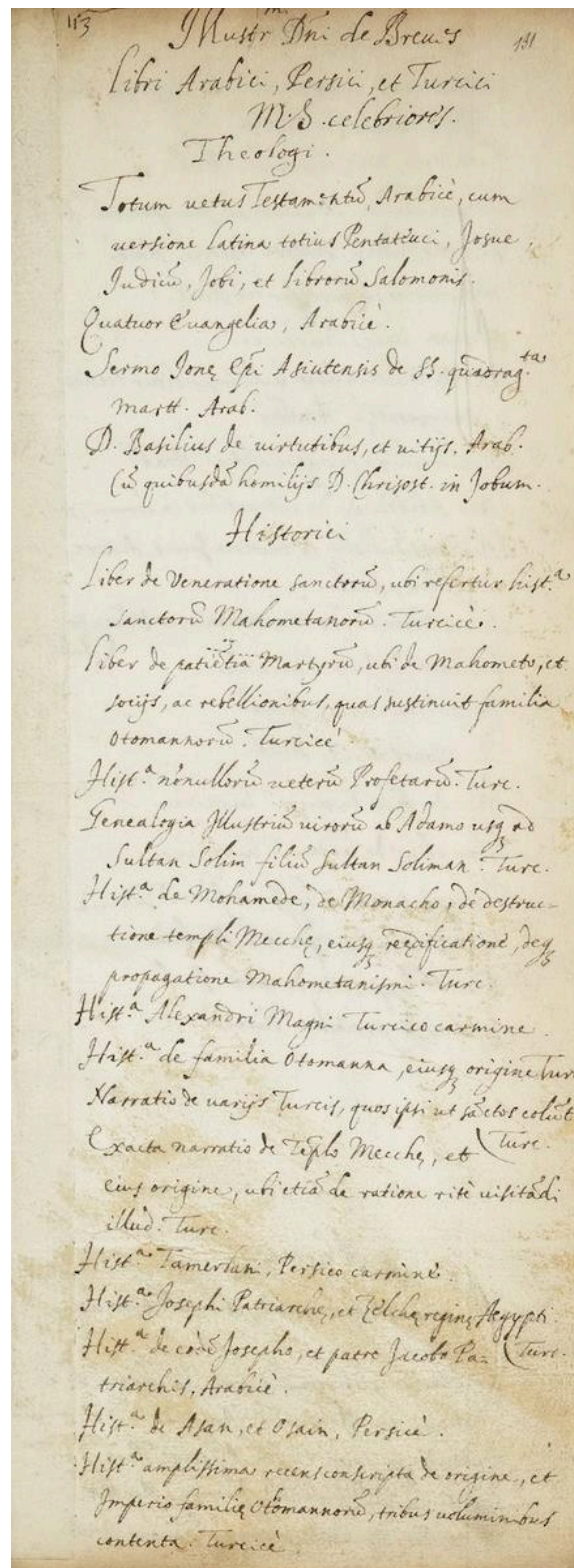 113
131
Illustr.mi Dni de Breues
Libri Arabici, Persici, et Turcici
M.S. celebriores.
Theologi.
Totum uetus Testamentū, Arabicè, cum
uersione Latina totius Pentateuci, Josue,
Judicū, Jobi, et librorū Salomonis.
Quatuor Euangelia, Arabicè.
Sermo Jonę Epi Asiutensis de SS. quadrag.ta
martt. Arab.
D. Basilius de uirtutibus, et uitijs. Arab.
Cū quibusdā homilijs D. Chrisost. in Jobum.
Historici
Liber de Veneratione sanctorū, ubi refertur hist.a
sanctorū Mahometanorū. Turcicè.
Liber de patiētia Martyrū, ubi de Mahometo, et
socijs, ac rebellionibus, quas sustinuit familia
Otomannorū. Turcicè
Hist.a nōnullorū ueterū Profetarū. Turc.
Genealogia Illustriū uirorū ab Adamo usq ad
Sultan Solim filiū Sultan Soliman. Turc.
Hist.a de Mohamede, de Monacho, de destruc-
tione templi Mecchę, eiusq reędificatione, deq
propagatione Mahometanismi. Turc.
Hist.a Alexandri Magni Turcico carmine.
Hist.a de familia Otomanna, eiusq origine Tur
Narratio de uarijs Turcis, quos ipsi ut sāctos colūt
Exacta narratio de Tēplo Mecchę, et (Turc.
eius origine, ubi etiā de ratione ritè uisitādi
illud. Turc.
Hist.a Tamerlani, Persico carmine.
Hist.a Josephi Patriarchę, et Zelchę reginę Aegypti
Hist.a de eodē Josepho, et patre Jacobo Pa= (Turc.
triarchis, Arabicè.
Hist.a de Asan, et Osain, Persicè.
Hist.a amplissima recens conscripta de origine, et
Imperio familię Otomannorū, tribus uoluminibus
contenta. Turcicè